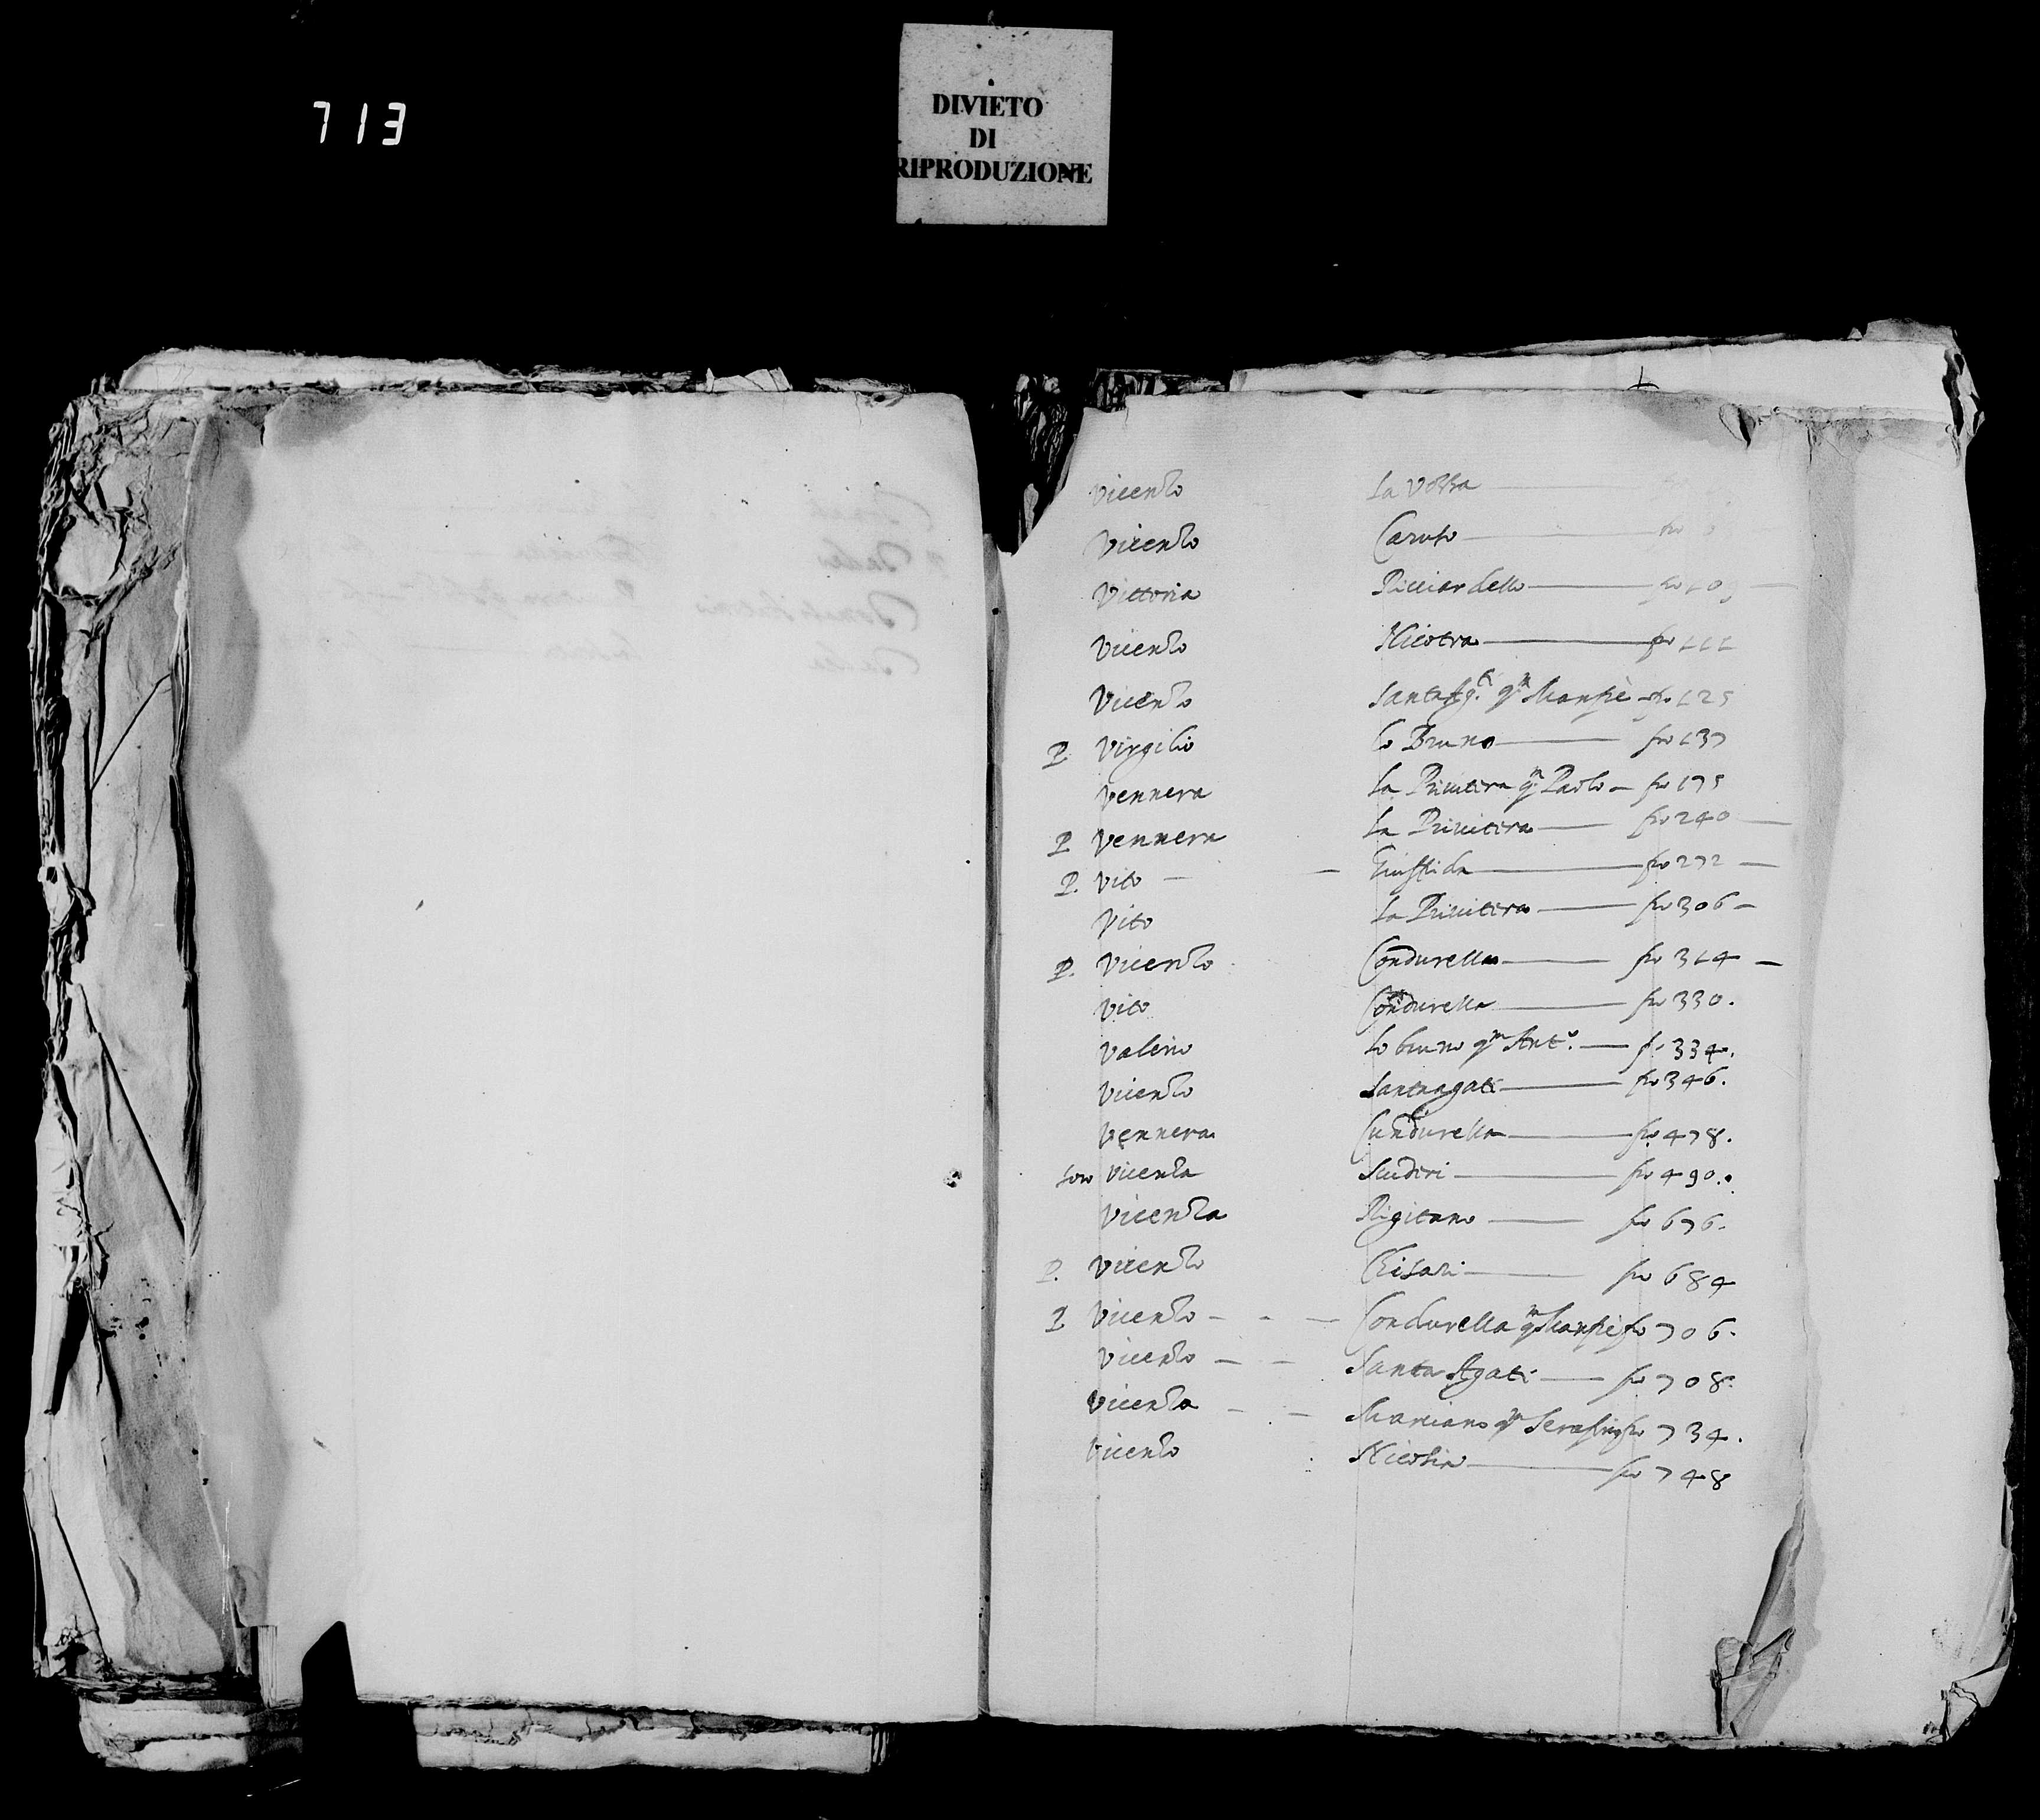 713
DIVIETO
DI
RIPRODUZIONE
Vicenzo La
Vicenzo Caruso fro
Vittoria Ricciardello fro 109
Vicenzo Nicotra fro 111
Vicenzo SantaAg.ti q.m Manfrè fro 125
P. Virgilio lo Bruno fro 137
Vennera La Privitera q.m Paolo fro 175
P. Vennera La Privitera fro 240
P. Vito Giuffrida fro 272
Vito La Privitera fro 306
P. Vicenzo Condurella fro 314
Vito Condurella fro 330.
Valerio lo bruno q.m Ant.o fro 334.
Vicenzo Santagati fro 346.
Vennera Cundurella fro 478.
Soro Vicenza Scuderi fro 490.
Vicenza Rigitano fro 676.
P. Vicenzo Chisari fro 684
P. Vicenzo Condurella q.m Manfrè fro 706.
Vicenzo Santa Agati fro 708.
Vicenza q.m fro 734.
Vicenzo Nicosia fro 748